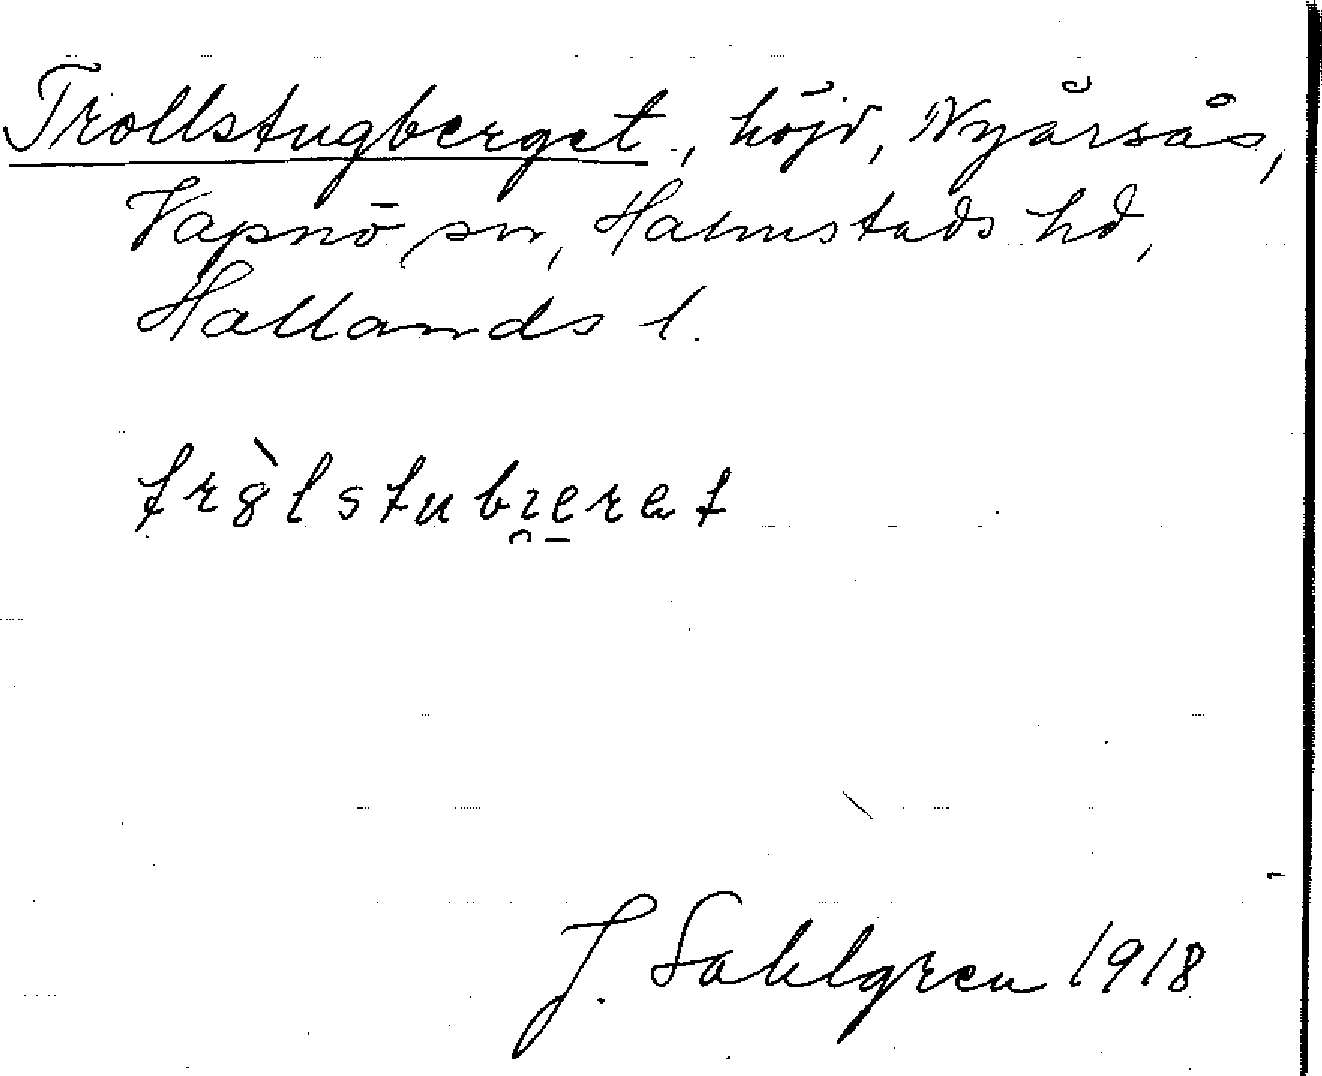 Trollstugberget, höjd, Nyårsås,
Vapnö sn, Halmstads hd,
Hallands l.
trò̀lstubɪeret
J. Sahlgren 1918